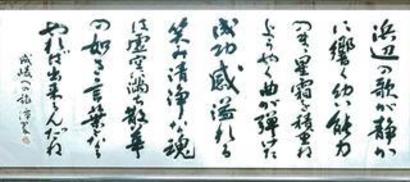 浜辺の歌が静か
に響く幼い能力
の芽星霜を積重ね
ようやく曲が弾けた
成功感溢れる
笑み清浄な魂
は虚空に満ち散華
の如き言葉となる
やれば出来るんだね